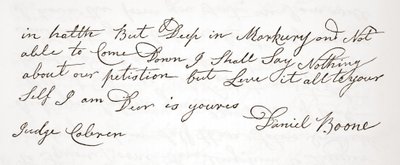 in halth But Deep in Markury and Not
able to Come Down I Shall Say Nothing
about our petistion but Leve it all to your
Self I am Deor is youres
Daniel Boone
Judge Cobren